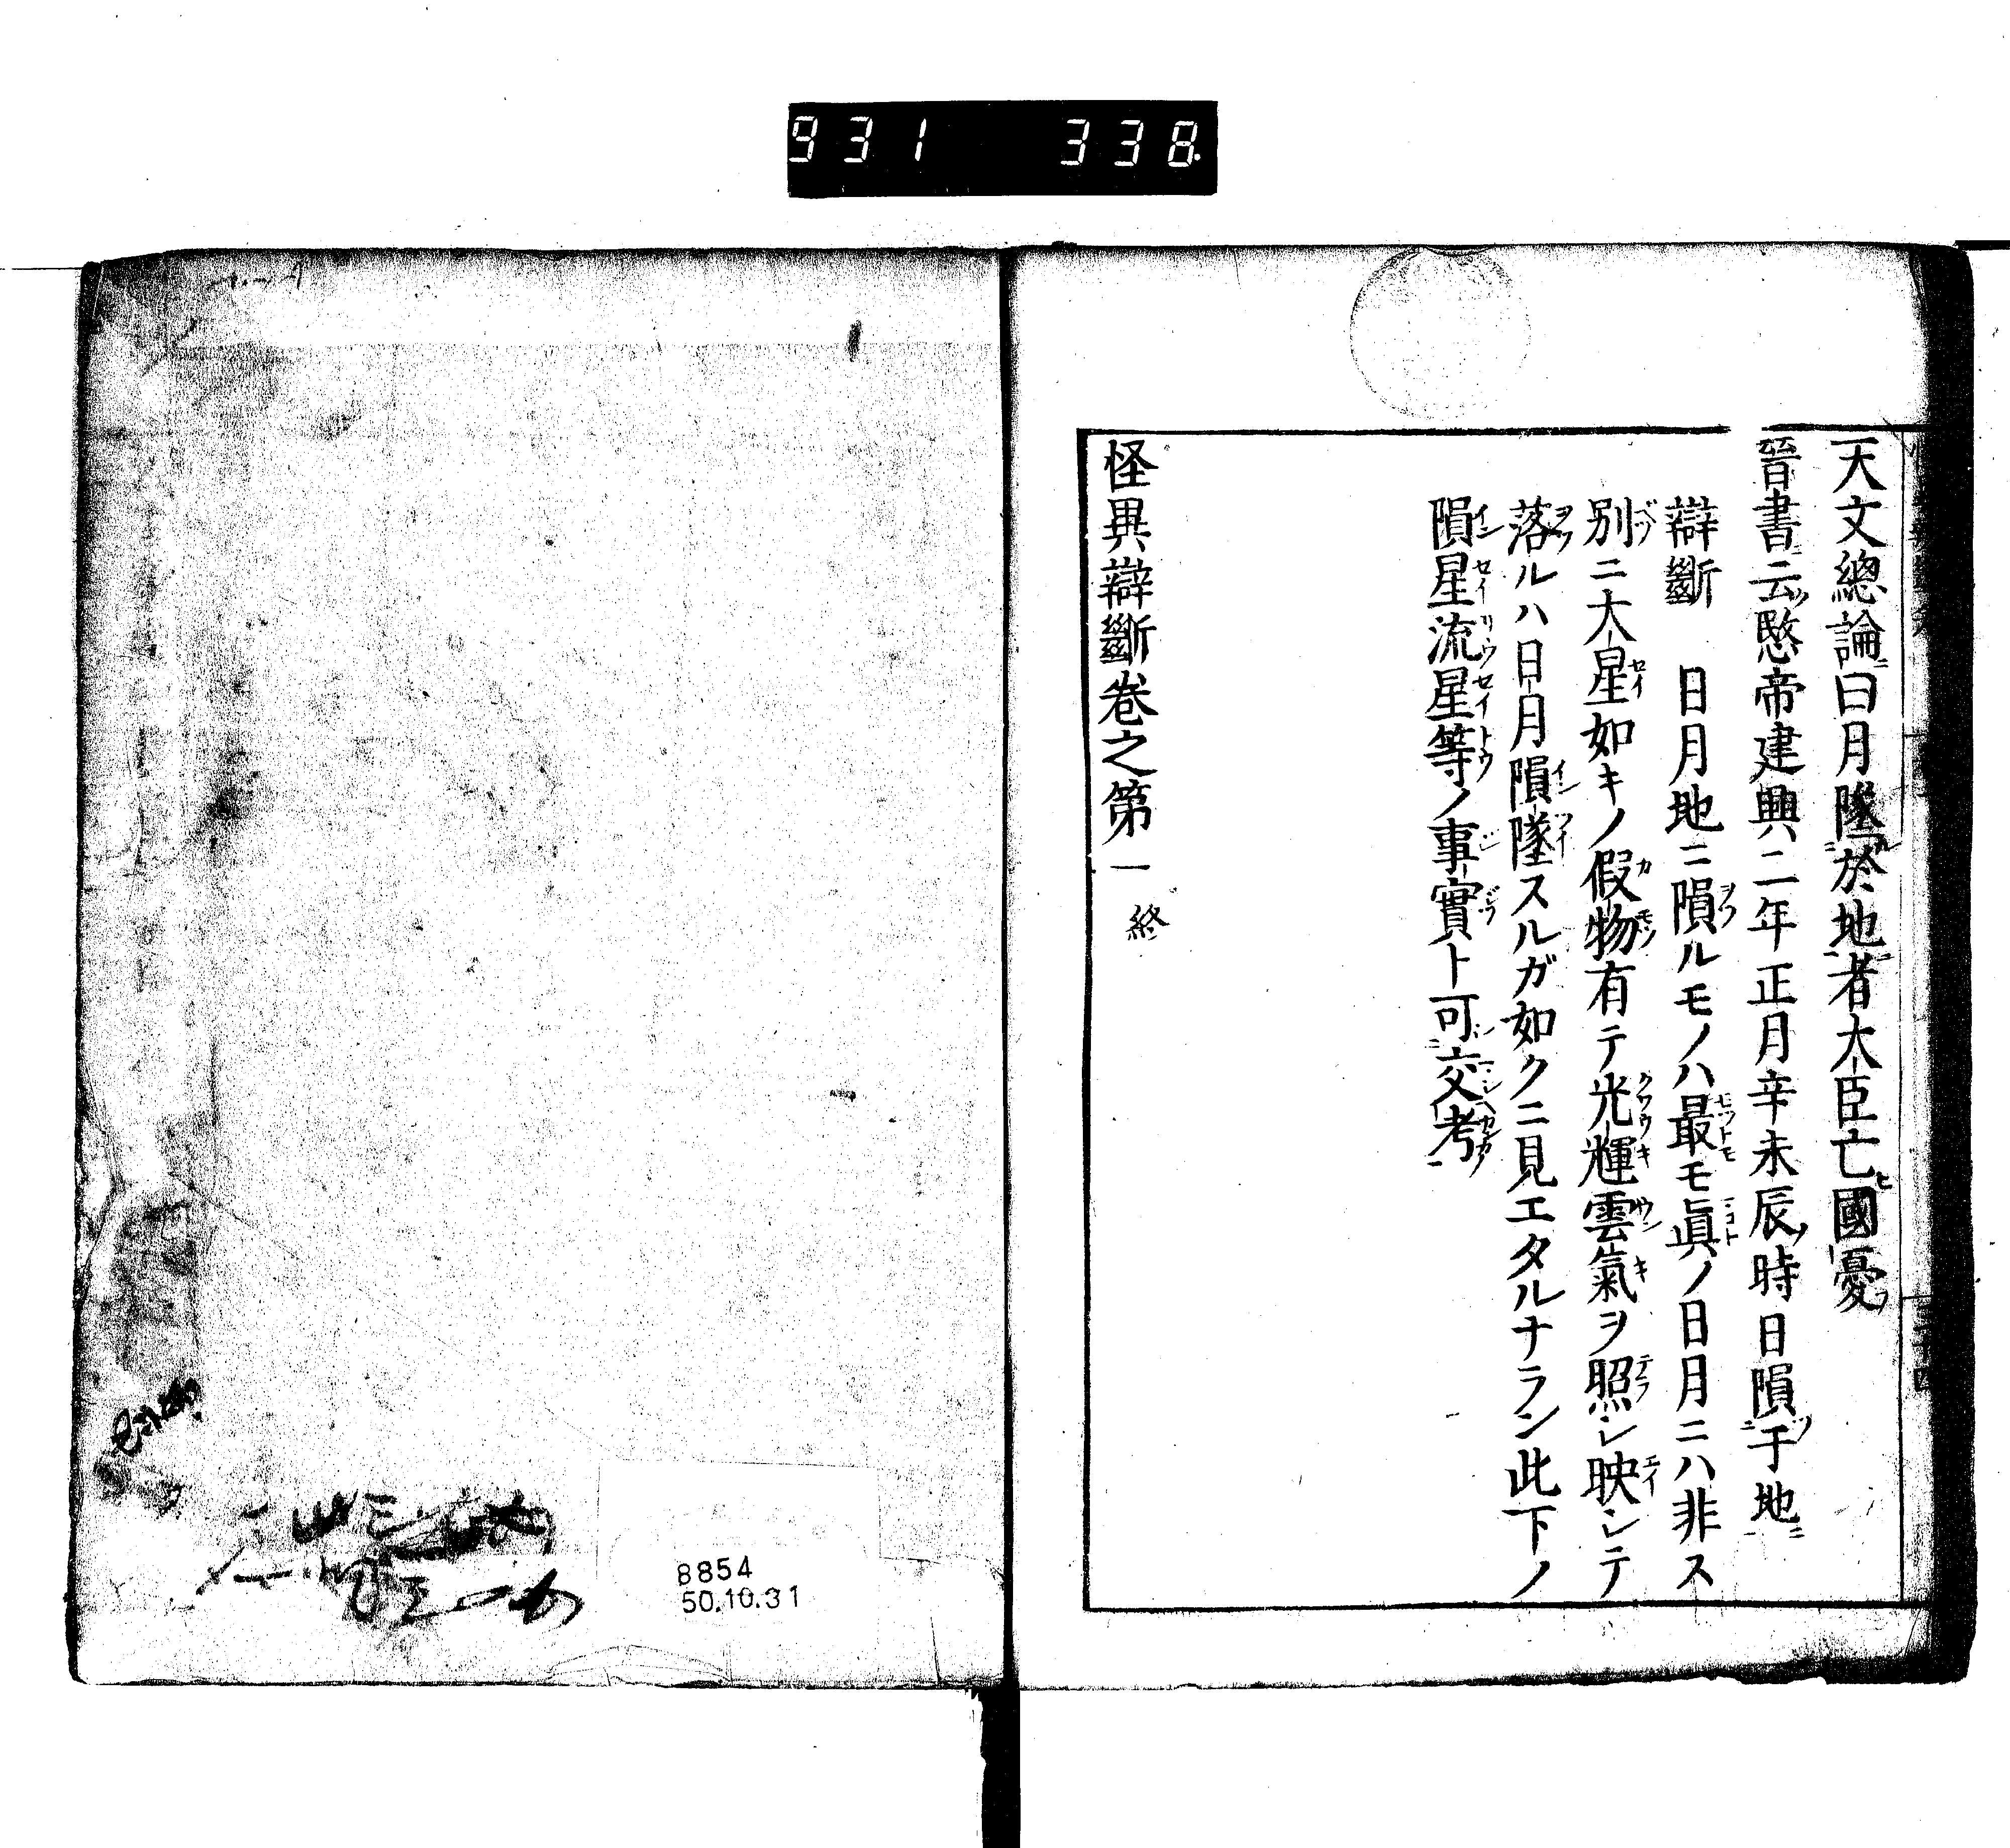 931 338
天文總論曰月墜於地者大臣亡國憂
晉書云愍帝建興二年正月辛未辰時日隕于地
辯斷 日月地ニ隕ルモノハ最モ眞ノ日月ニハ非ス
別ニ大星如キノ假物有テ光輝雲氣ヲ照シ映シテ
落ルハ日月隕墜スルガ如クニ見エタルナラン此下ノ
隕星流星等ノ事實ト可交考
怪異辯斷卷之第一 終
8854
50.10.31